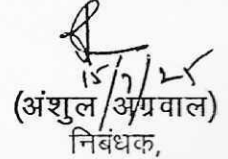 15/7/25
(अंशुल अग्रवाल)
निबंधक,